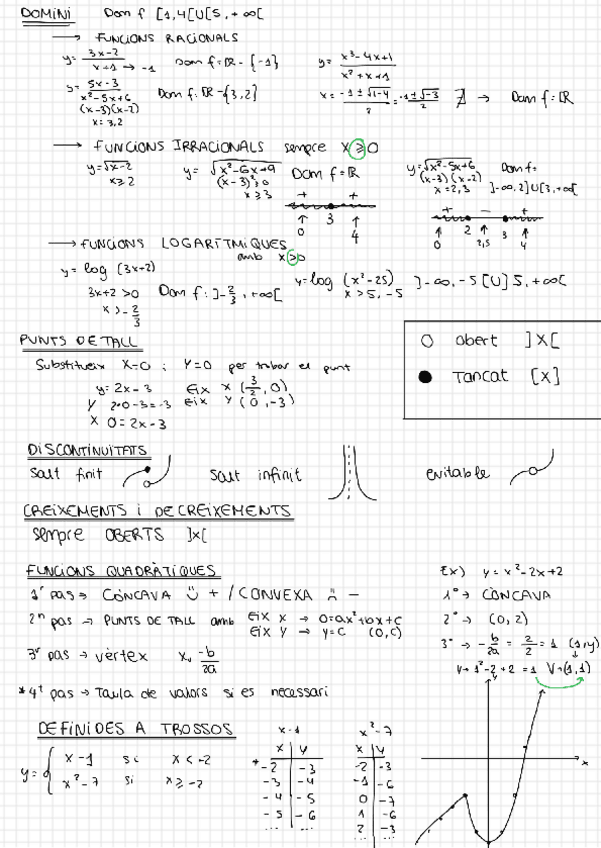 DOMINI Dom f [1,4[U[5,+∞[
→ FUNCIONS RACIONALS
y= 3x-2 / x+1 → -1 Dom f=ℝ-{-1} y= x³-4x+1 / x²+x+1
y= 5x-3 / x²-5x+6 Dom f: ℝ-{3,2} x= -1±√1-4 / 2 = -1±√-3 / 2 ∄ → Dom f=ℝ
(x-3)(x-2)
x=3,2
→ FUNCIONS IRRACIONALS sempre x≥0
y=√x-2 y=√x²-6x+9 Dom f=ℝ y=√x²-5x+6 Dom f=
x≥2 (x-3)²≥0 (x-3)(x-2)
x≥3 x=2,3 ]-∞,2]U[3,+∞[
+ + + - +
3 2 3
0 4 0 2,5 4
→ FUNCIONS LOGARÍTMIQUES
amb x>0
y=log (3x+2) y=log (x²-25) ]-∞,-5[U]5,+∞[
3x+2>0 Dom f: ]-2/3,+∞[ x>5,-5
x>-2/3
PUNTS DE TALL
Substitueix x=0 i y=0 per trobar el punt
y=2x-3 Eix x (3/2,0)
y 2·0-3=-3 Eix y (0,-3)
x 0=2x-3
○ obert ]x[
● Tancat [x]
DISCONTINUÏTATS
Salt finit Salt infinit evitable
CREIXEMENTS i DECREIXEMENTS
sempre OBERTS ]x[
FUNCIONS QUADRÀTIQUES
1r pas → CÒNCAVA + / CONVEXA -
2n pas → PUNTS DE TALL amb Eix x → 0=ax²+bx+c
Eix y → y=c (0,c)
3r pas → vèrtex xv -b/2a
*4t pas → Taula de valors si es necessari
Ex) y=x²-2x+2
1º → CÒNCAVA
2º → (0,2)
3º → -b/2a = 2/2 = 1 (1,y)
y→1²-2+2=1 V→(1,1)
DEFINIDES A TROSSOS
y={ x-1 si x<-2
x²-7 si x≥-2
x-1
x y
*-2 -3
-3 -4
-4 -5
-5 -6
... ...
x²-7
x y
-2 -3
-1 -6
0 -7
1 -6
2 -3
... ...
y
x